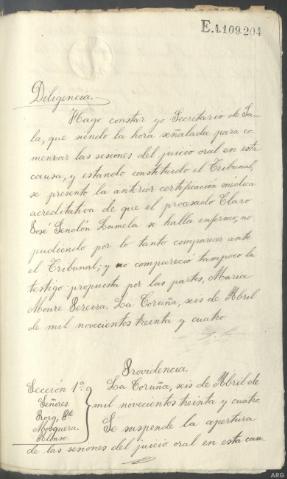 E.1.109.204
Diligencia.
Hago constar yo Secretario de Sa-
la, que siendo la hora señalada para co-
menzar las sesiones del juicio oral en esta
causa, y estando constituido el Tribunal,
se presentó la anterior certificación médica
acreditativa de que el procesado Claro
José Senolón se halla enfermo, no
pudiendo por lo tanto comparecer ante
el Tribunal; y no compareció tampoco la
testigo propuesta por las partes, María
Moure Pereira. La Coruña, seis de Abril
de mil novecientos treinta y cuatro
Providencia
Sección 1ª
Señores
Mosquera
La Coruña, seis de Abril de
mil novecientos treinta y cuatro
Se suspende la apertura
de las sesiones del juicio oral en esta cau
ARG